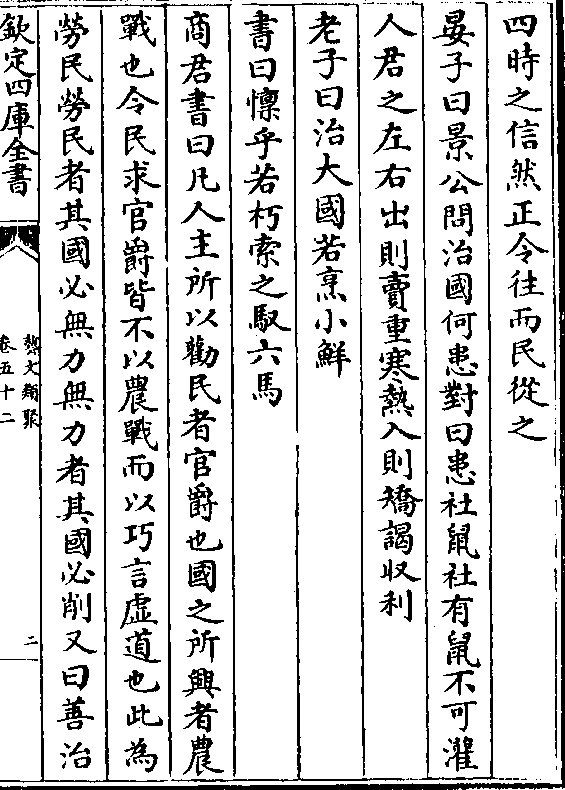 四時之信然正令往而民從之
晏子曰景公問治國何患對曰患社鼠社有鼠不可灌
人君之左右出則賣重寒熱入則矯謁收利
老子曰治大國若烹小鮮
書曰懍乎若朽索之馭六馬
商君書曰凡人主所以勸民者官爵也國之所興者農
戰也令民求官爵皆不以農戰而以巧言虛道也此為
勞民勞民者其國必無力無力者其國必削又曰善治
欽定四庫全書
藝文類聚
卷五十二
二